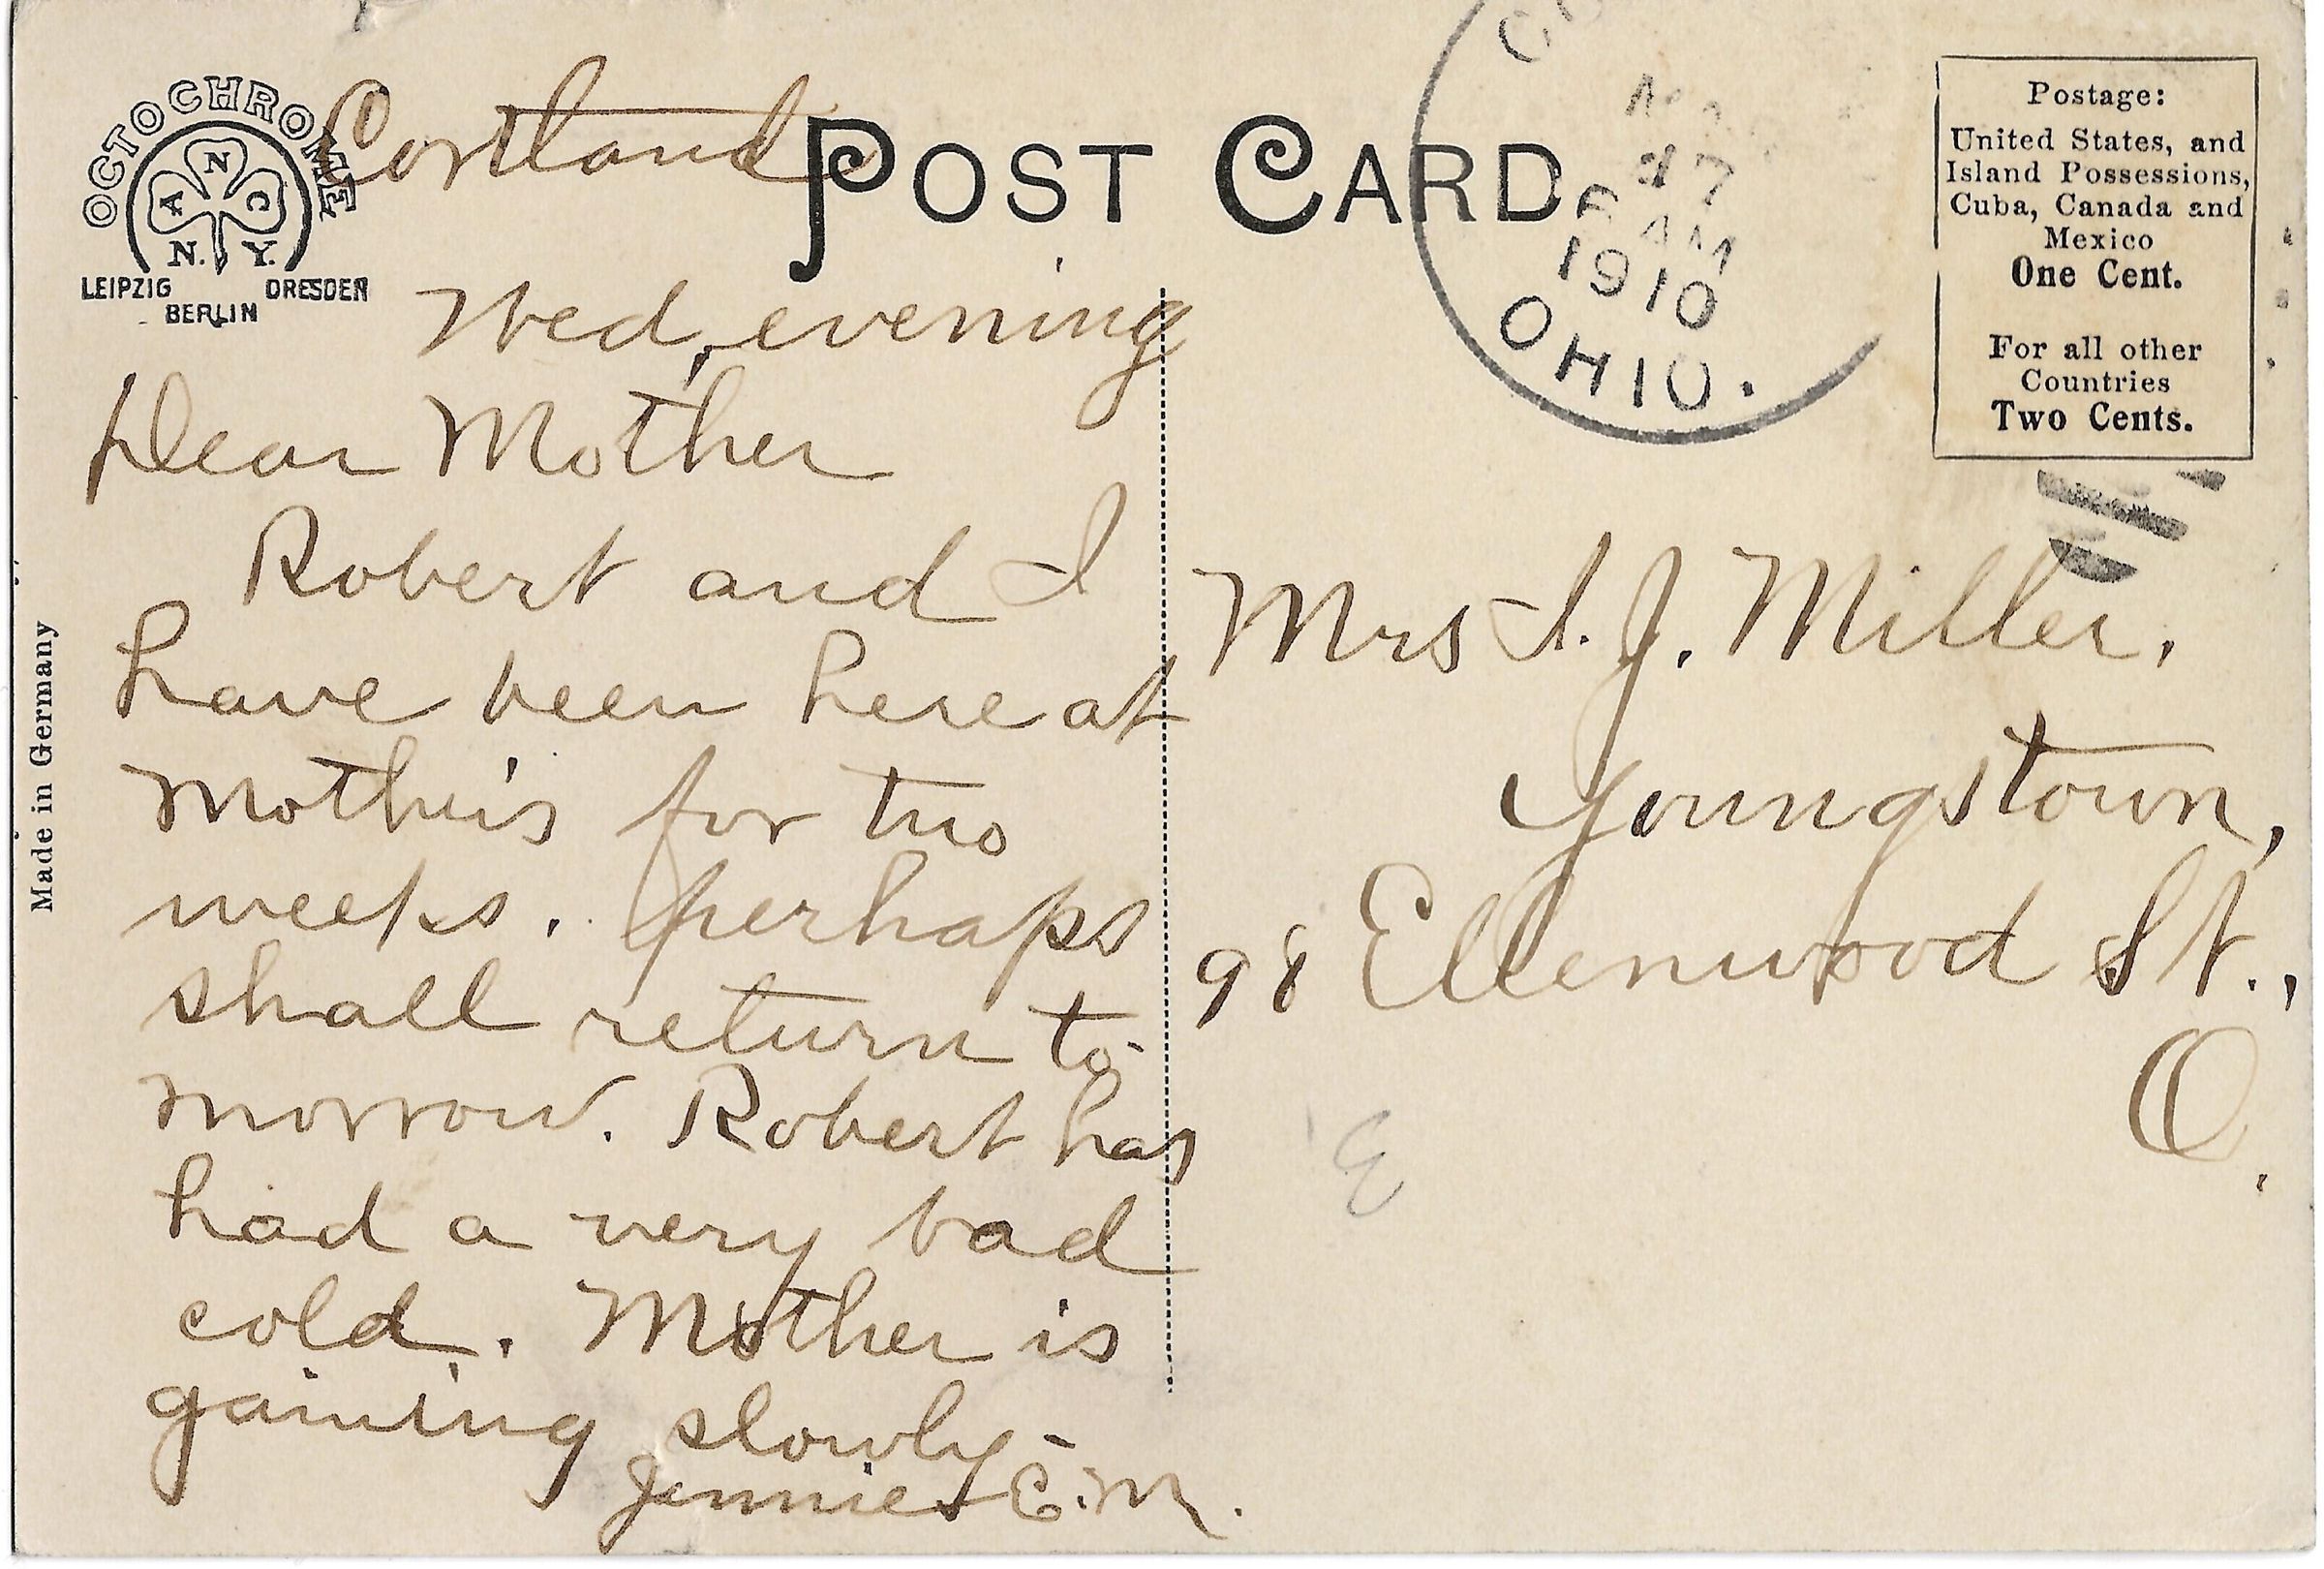 OCTOCHROME
A N C
N. Y.
LEIPZIG DRESDEN
BERLIN
Made in Germany
POST CARD
Cortland
Wed, evening
Dear Mother
Robert and I
have been here at
Mother's for two
weeks. perhaps
shall return to-
morrow. Robert has
had a very bad
cold. Mother is
gaining slowly-
Jennie E. M.
7
AM
1910
OHIO.
Postage:
United States, and
Island Possessions,
Cuba, Canada and
Mexico
One Cent.
For all other
Countries
Two Cents.
Mrs I. J. Miller.
Youngstown,
98 Ellenwood St.,
O.